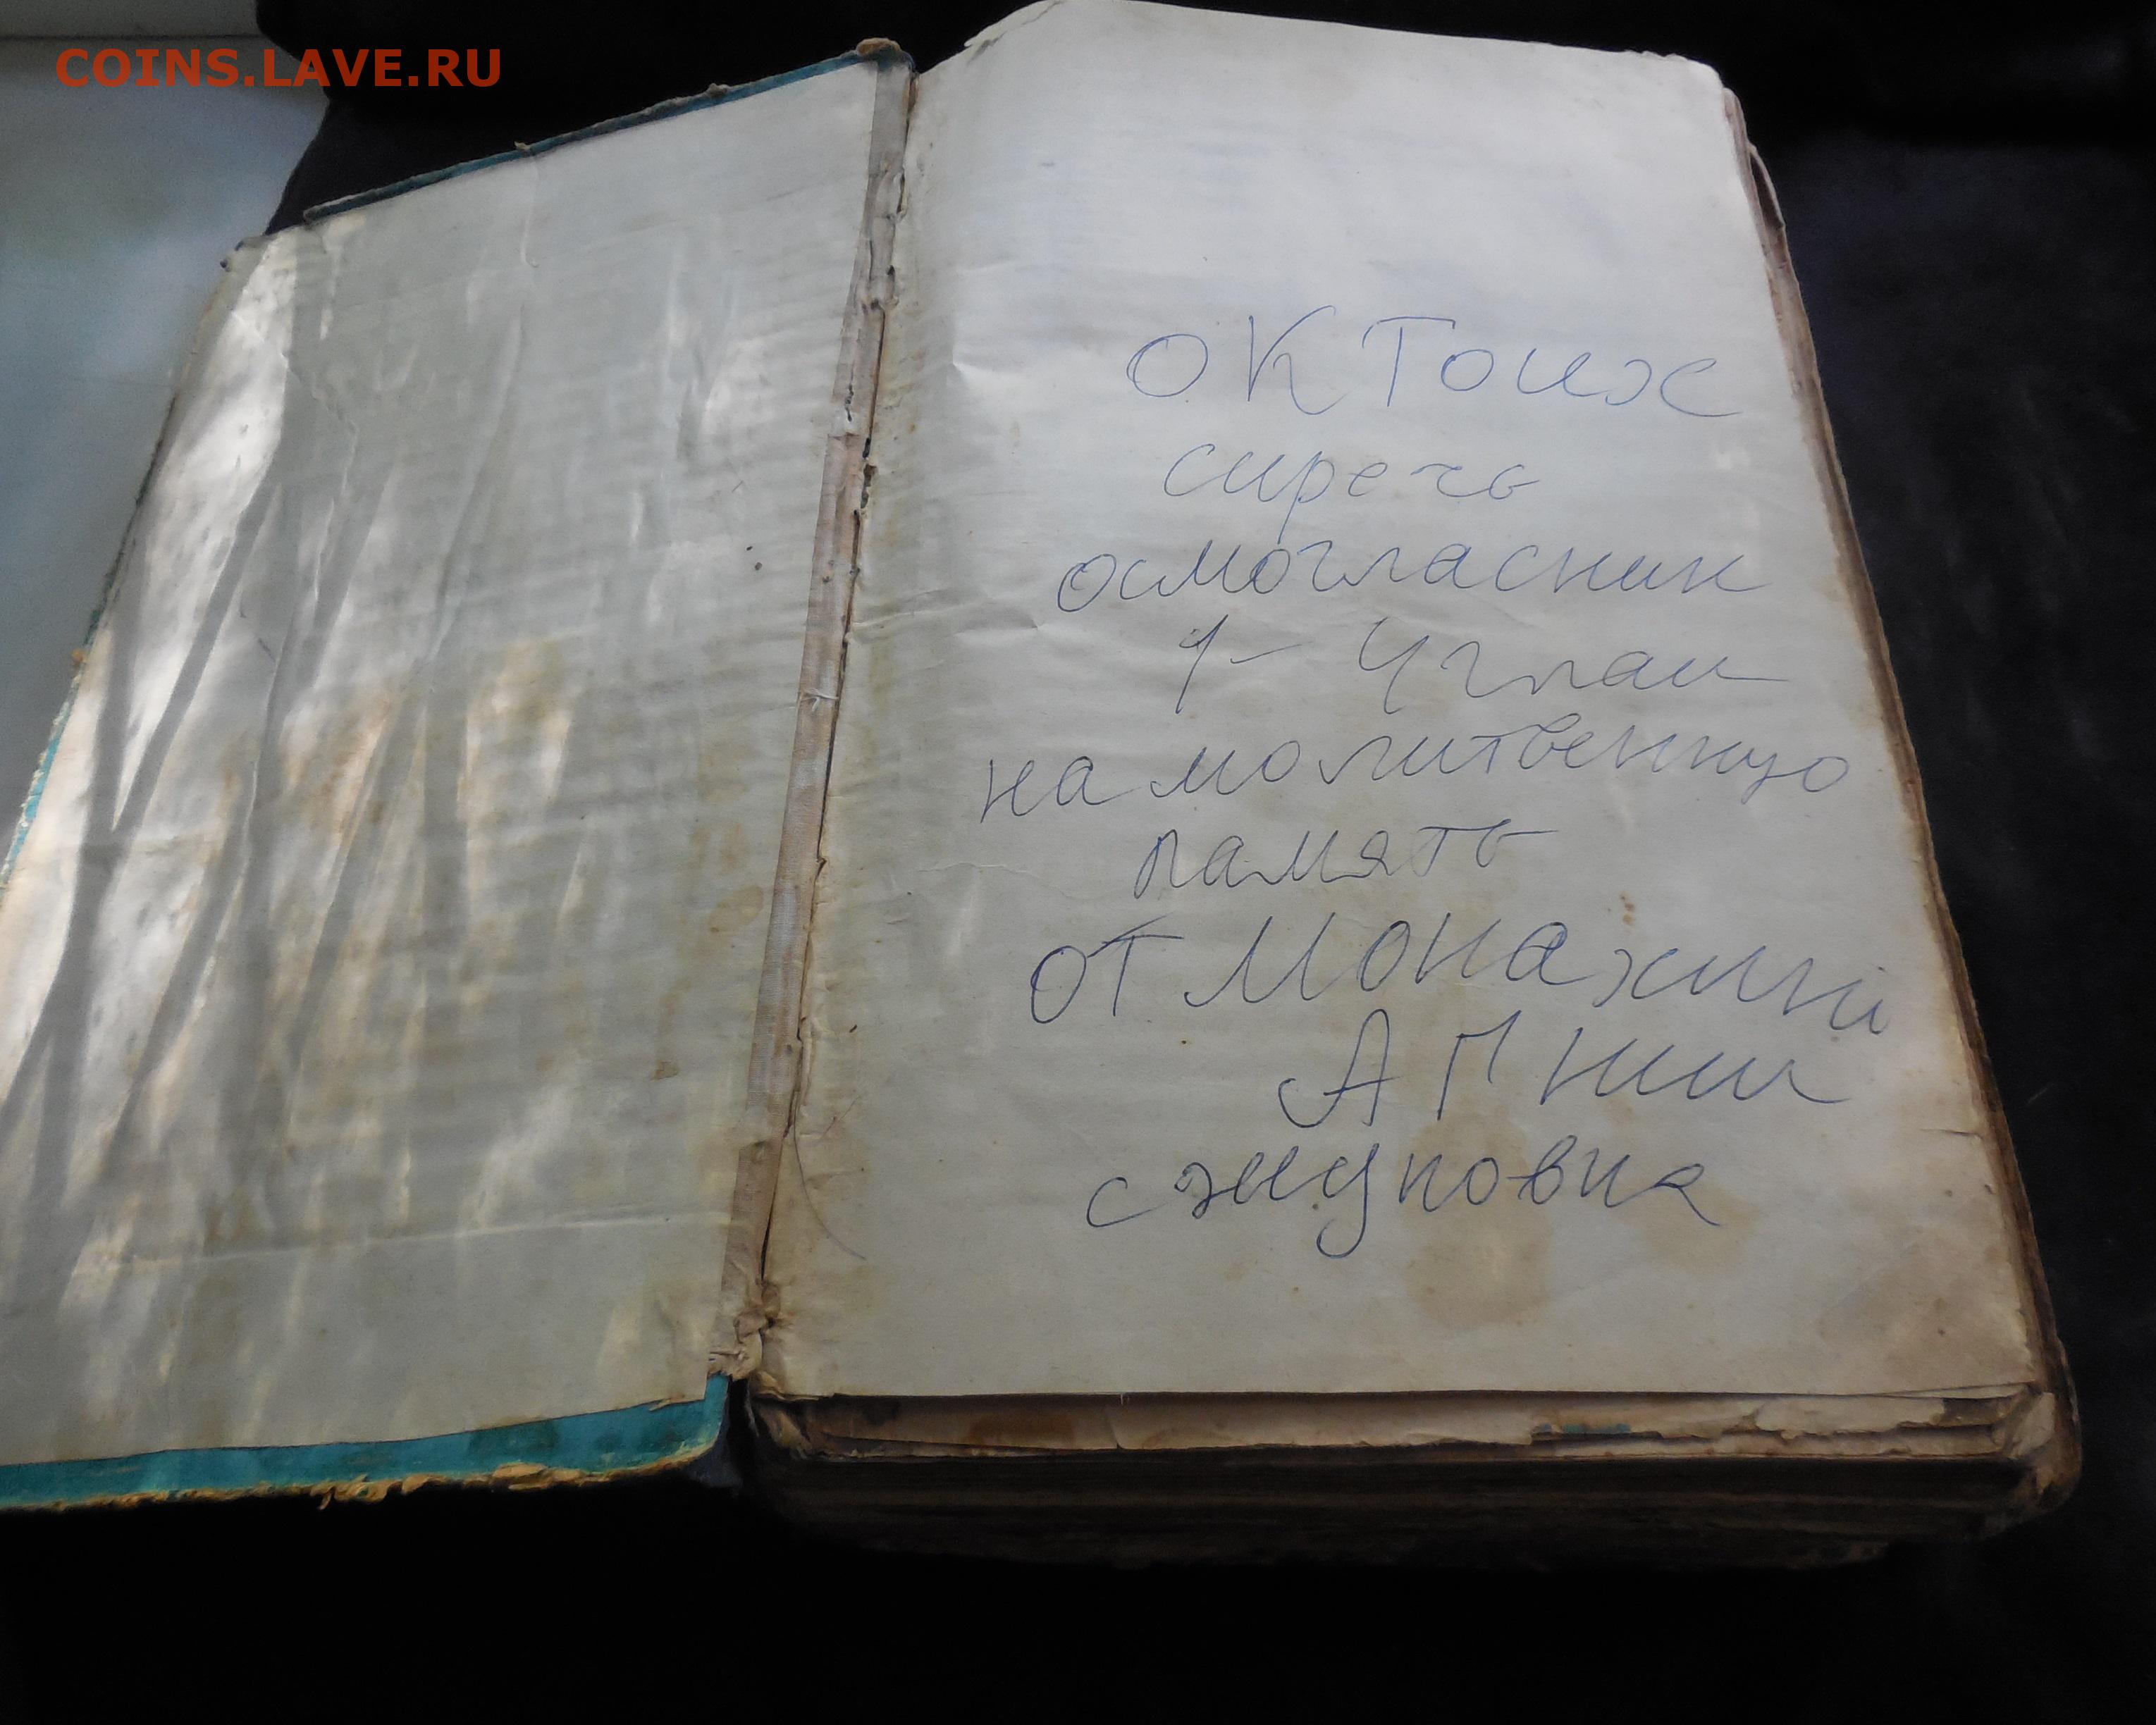 COINS.LAVE.RU
ОКТоих
сиречь
осмогласник
1- 4 глаи
на молитвенную
память
от монахини
АПнии